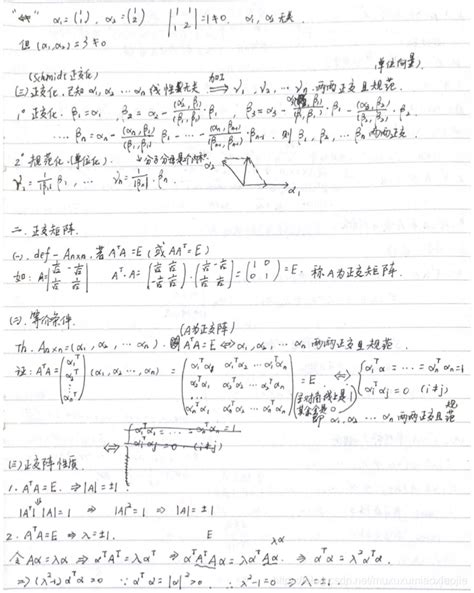 "⇍" α₁=(1 1), α₂=(1 2) |1 1 1 2|=1≠0. α₁, α₂ 无关
但 (α₁,α₂)=3≠0
(Schmidt正交化) (单位向量)
(三)正交化. 已知 α₁, α₂ … αn 线性无关 ⟹ γ₁, γ₂, … γn 两两正交且规范.
1° 正交化. β₁=α₁, β₂=α₂-(α₂,β₁)/(β₁,β₁)·β₁, β₃=α₃-(α₃,β₁)/(β₁,β₁)·β₁-(α₃,β₂)/(β₂,β₂)·β₂
… βn=αn-(αn,β₁)/(β₁,β₁)β₁-…-(αn,βn-1)/(βn-1,βn-1)·βn-1. 则 β₁, β₂, … βn 两两正交
2° 规范化.(单位化)
γ₁=1/|β₁| β₁, … γn=1/|βn|·βn.
α₂
α₁
二. 正交矩阵.
(一). def - An×n, 若 AᵀA=E (或 AAᵀ=E)
如: A=(1/√2 -1/√2 1/√2 1/√2) Aᵀ·A=(1/√2 1/√2 -1/√2 1/√2)·(1/√2 -1/√2 1/√2 1/√2)=(1 0 0 1)=E. 称A为正交矩阵.
(二). 等价条件.
(A为正交阵)
Th. An×n=(α₁, α₂, … αn). AᵀA=E ⟺ α₁, α₂, … αn 两两正交且规范.
证: AᵀA=(α₁ᵀ α₂ᵀ ⋮ αnᵀ)(α₁, α₂ …, αn) = (α₁ᵀα₁ α₁ᵀα₂ … α₁ᵀαn α₂ᵀα₁ α₂ᵀα₂ … α₂ᵀαn … αnᵀα₁ αnᵀα₂ … αnᵀαn) = E. ⟺ {α₁ᵀα₁=…=αnᵀαn=1 αiᵀαj=0 (i≠j)
主对角线上是1
其余全是0
即 α₁, α₂ … αn 两两正交且规范
⟺ {α₁ᵀα₁=…=αnᵀαn=1 αiᵀαj=0 (i≠j)
(三)正交阵性质.
1. AᵀA=E. ⟹ |A|=±1.
|Aᵀ||A|=1 ⟹ |A|²=1 ⟹ |A|=±1
2. AᵀA=E ⟹ λ=±1.
E λα
令 Aα=λα ⟹ αᵀAᵀ=λαᵀ ⟹ αᵀAᵀAα=λαᵀAα. ⟹ αᵀα=λ²αᵀα.
⟹ (λ²-1)αᵀα=0 ∵ αᵀα=|α|²>0 ∴ λ²-1=0 ⟹ λ=±1.